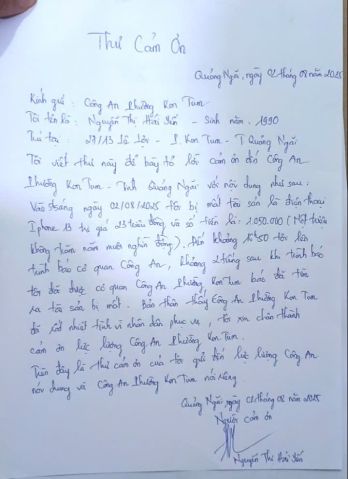 Thư Cảm Ơn
Quảng Ngãi, ngày 02 tháng 08 năm 2025
Kính gửi: Công An Phường Kon Tum
Tôi tên là: Nguyễn Thị Hải Yến - Sinh năm: 1990
Thường trú: 27/13 Lê Lợi - P. Kon Tum - T Quảng Ngãi
Tôi viết thư này để bày tỏ lời cảm ơn đến Công An
Phường Kon Tum - Tỉnh Quảng Ngãi với nội dung như sau:
Vào sáng ngày 02/08/2025 tôi bị mất tài sản là điện thoại
Iphone 13 trị giá 23 triệu đồng và số tiền là: 1.050.000 (Một triệu
không trăm năm mươi nghìn đồng). Đến khoảng 50 tôi lên
trình báo cơ quan Công An, khoảng 2 tiếng sau khi trình báo
tôi đã được cơ quan Công An Phường Kon Tum báo đã tìm
ra tài sản bị mất. Bản thân thấy Công An Phường Kon Tum
đã rất nhiệt tình vì nhân dân phục vụ, tôi xin chân thành
cảm ơn lực lượng Công An Phường Kon Tum.
Trên đây là thư cảm ơn của tôi gửi đến lực lượng Công An
nói chung và Công An Phường Kon Tum nói riêng.
Quảng Ngãi, ngày 02 tháng 08 năm 2025
Người cảm ơn
Nguyễn Thị Hải Yến